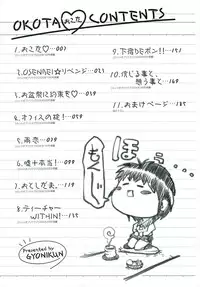 OKOTA おこた♡ CONTENTS
1.おこた♡…001
2.OSENBEI☆リベンジ…021
3.お盆祭に約束を♡…039
4.オフィスの掟!…059
5.雨恋…079
6.暖◎本当!…099
7.おとしだま。…119
8.ティーチャー
WITHIN!…135
9.下宿DEポン!!…151
10.信じる事と、
想う事と…169
11.おまけページ…185
ほぅ
もぐ
Presented by
GYONIKUN